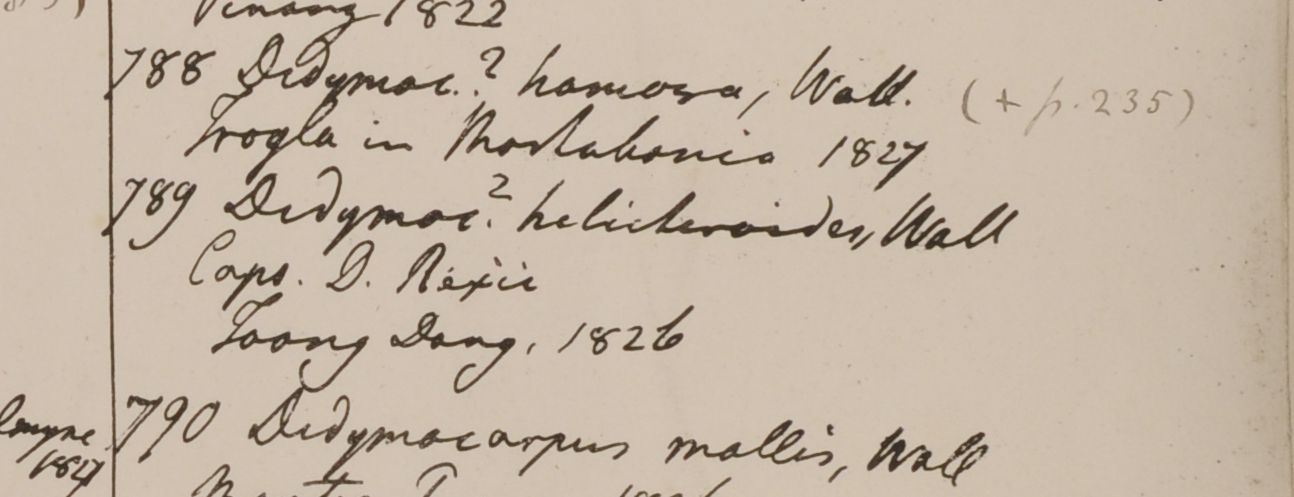 Pinang 1822
788 Didymoc.? hamosa, Wall. (+ p. 235)
Trogla in Martabania 1827
789 Didymoc.? helicteroides, Wall
Caps. D. Rexii
Toong Dong, 1826
1827
790 Didymocarpus mollis, Wall